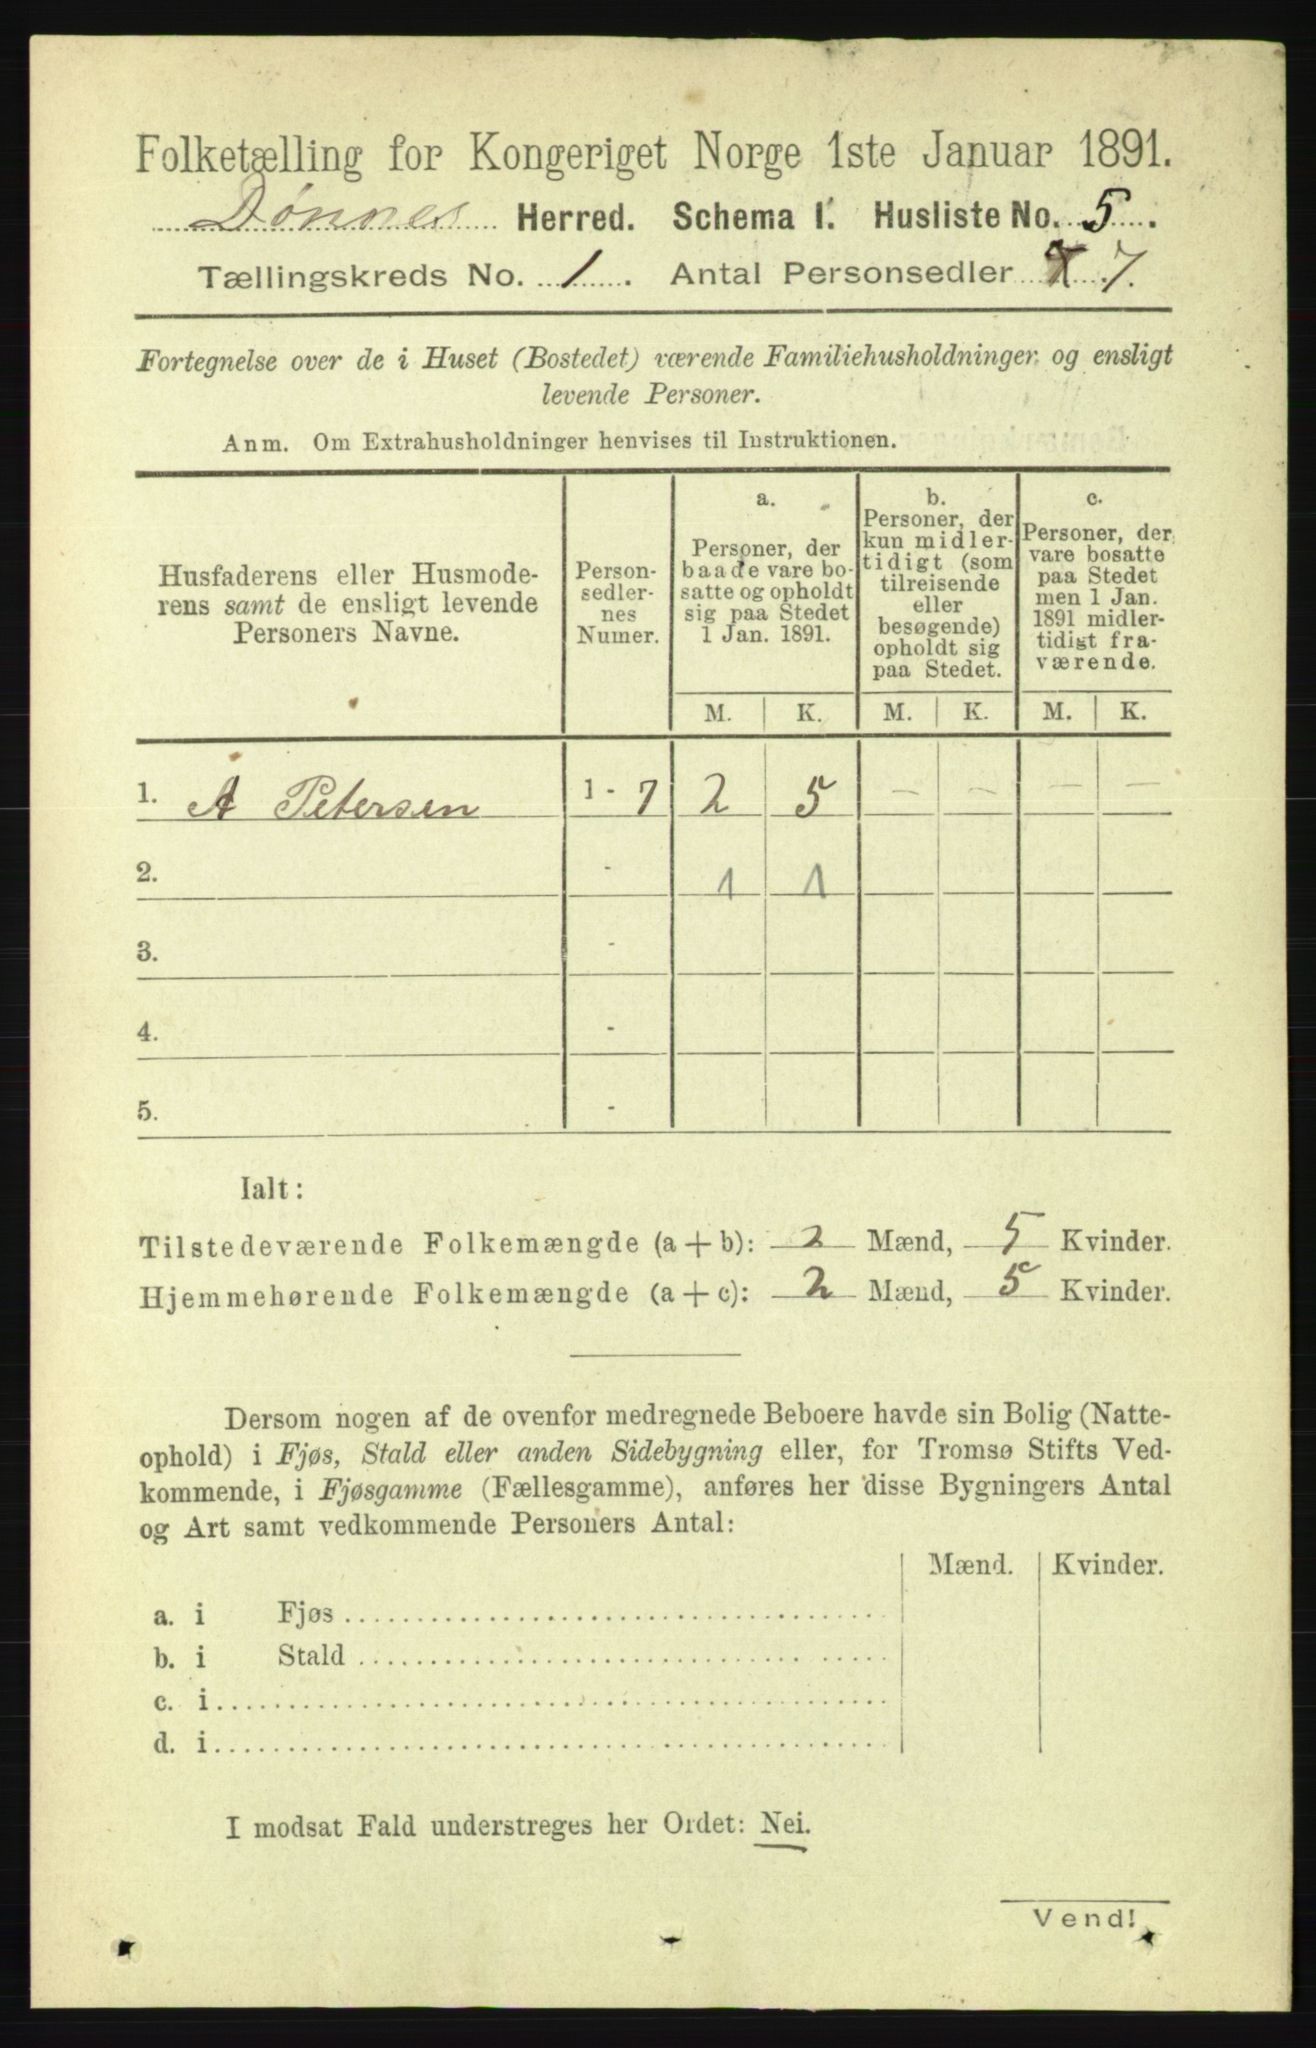 Folketælling for Kongeriget Norge 1ste Januar 1891.
Dønnes Herred. Schema 1. Husliste No. 5.
Tællingskreds No. 1. Antal Personsedler 7.
Fortegnelse over de i Huset (Bostedet) værende Familiehusholdninger og ensligt
levende Personer.
Anm. Om Extrahusholdninger henvises til Instruktionen.
Husfaderens eller Husmode-
rens samt de ensligt levende
Personers Navne.
Person-
sedler-
nes
Numer.
a.
Personer, der
baade vare bo-
satte og opholdt
sig paa Stedet
1 Jan. 1891.
b.
Personer, der
kun midler-
tidigt (som
tilreisende
eller
besøgende)
opholdt sig
paa Stedet.
c.
Personer, der
vare bosatte
paa Stedet
men 1 Jan.
1891 midler-
tidigt fra-
værende.
M. K. M. K. M. K.
1. A Petersen 1 - 7 2 5 — — — —
2. - 1 1
3. -
4. -
5. -
Ialt:
Tilstedeværende Folkemængde (a + b): 2 Mænd, 5 Kvinder.
Hjemmehørende Folkemængde (a + c): 2 Mænd, 5 Kvinder.
Dersom nogen af de ovenfor medregnede Beboere havde sin Bolig (Natte-
ophold) i Fjøs, Stald eller anden Sidebygning eller, for Tromsø Stifts Ved-
kommende, i Fjøsgamme (Fællesgamme), anføres her disse Bygningers Antal
og Art samt vedkommende Personers Antal:
Mænd. Kvinder.
a. i Fjøs
b. i Stald
c. i
d. i
I modsat Fald understreges her Ordet: Nei.
Vend!